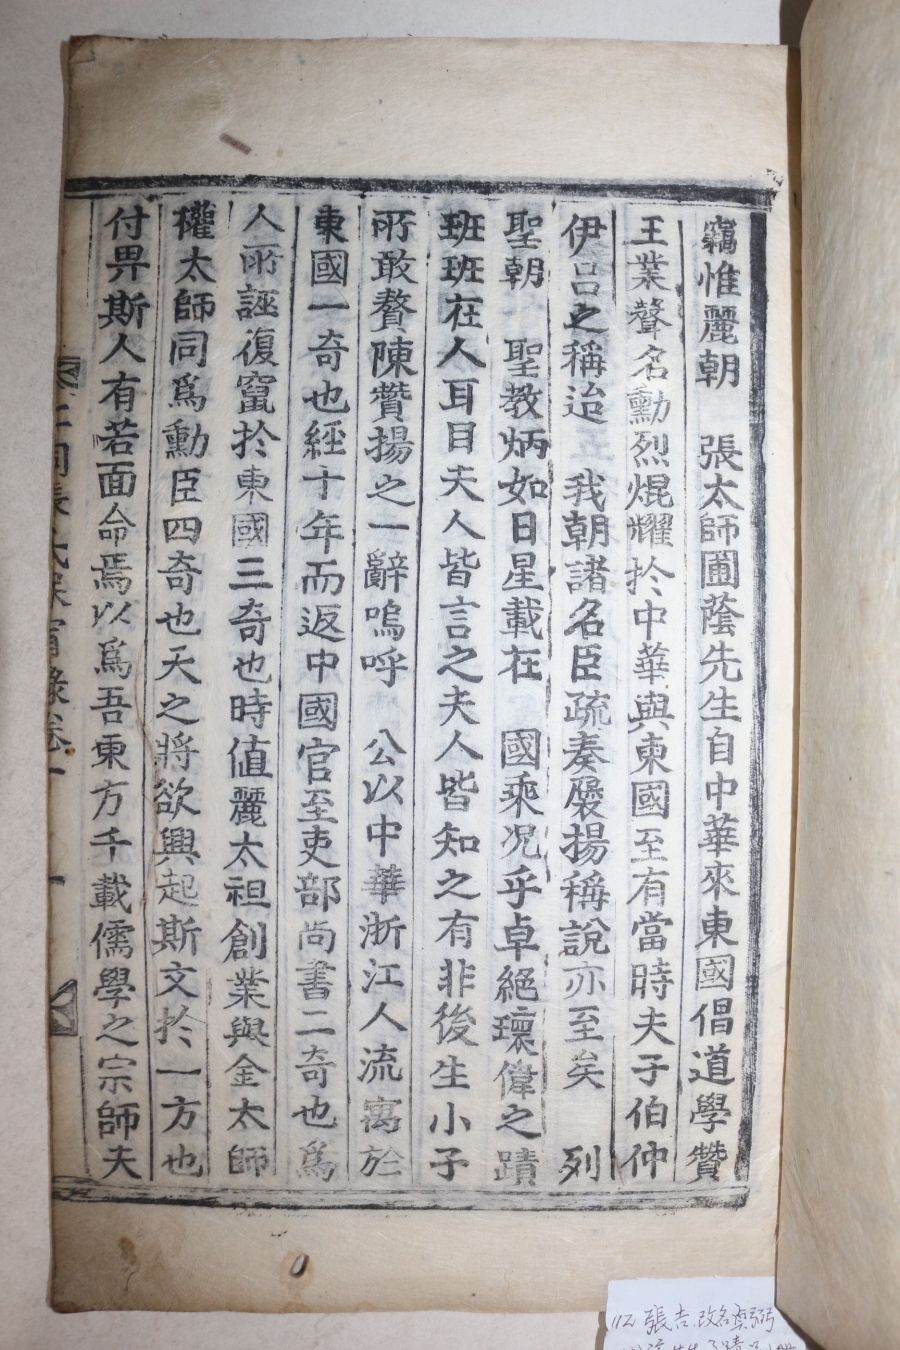 竊惟麗朝　張太師圃蔭先生自中華來東國倡道學贊
王業聲名勳烈焜耀於中華與東國至有當時夫子伯仲
伊呂之稱迨　我朝諸名臣疏奏褒揚稱說亦至矣　列
聖朝　聖教炳如日星載在　國乘况乎卓絕瓌偉之蹟
班班在人耳目夫人皆言之夫人皆知之有非後生小子
所敢贅陳贊揚之一辭嗚呼　公以中華浙江人流寓於
東國一奇也經十年而返中國官至吏部尙書二奇也爲
人所誣復竄於東國三奇也時値麗太祖創業與金太師
權太師同爲勳臣四奇也天之將欲興起斯文於一方也
付畀斯人有若面命焉以爲吾東方千載儒學之宗師夫
張
實錄卷一
一
112 張吉,改名貞弼